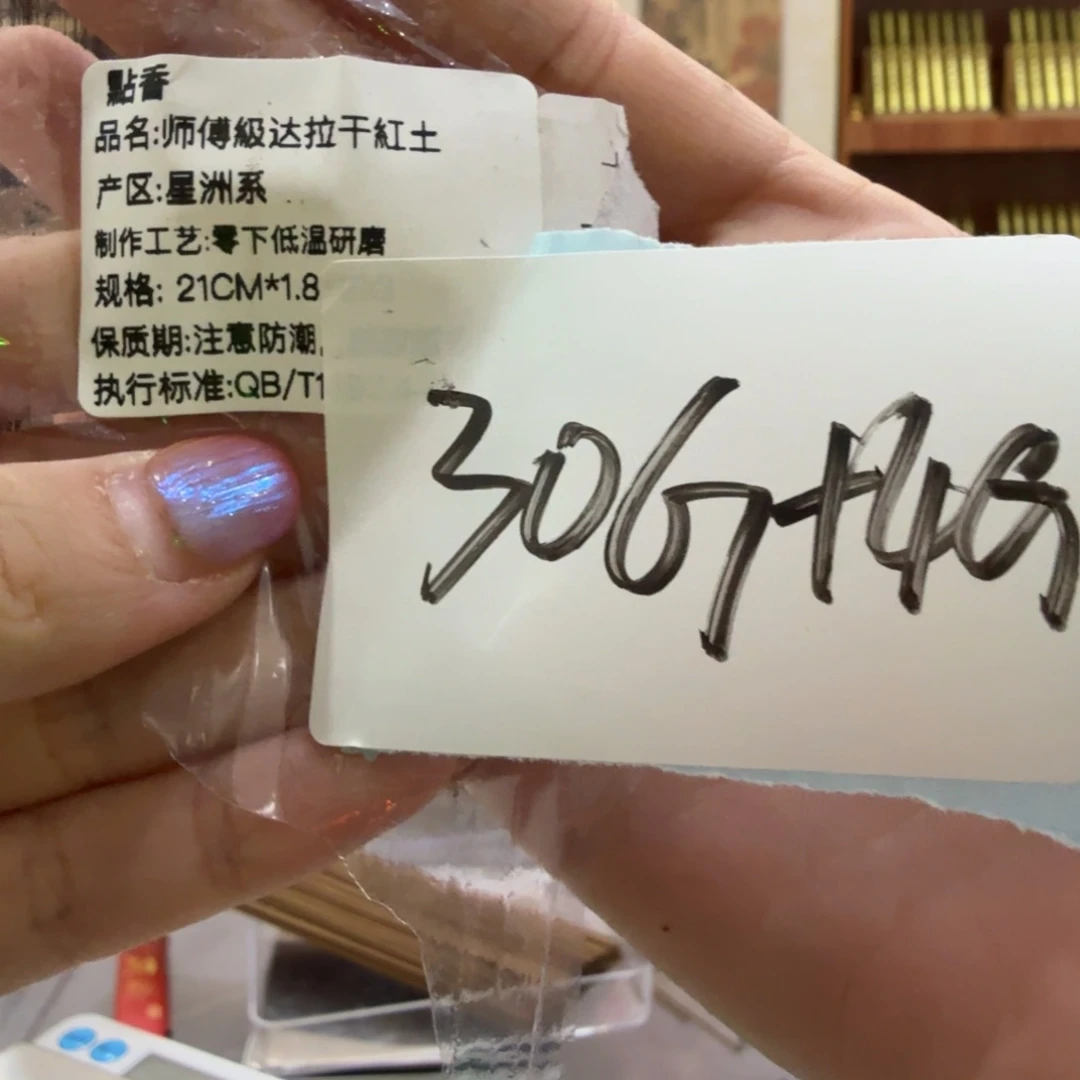 點香
品名:师傅級达拉干紅土
产区:星洲系
制作工艺:零下低温研磨
规格: 21CM*1.8
保质期:注意防潮,
执行标准:QB/T1
30G+4G